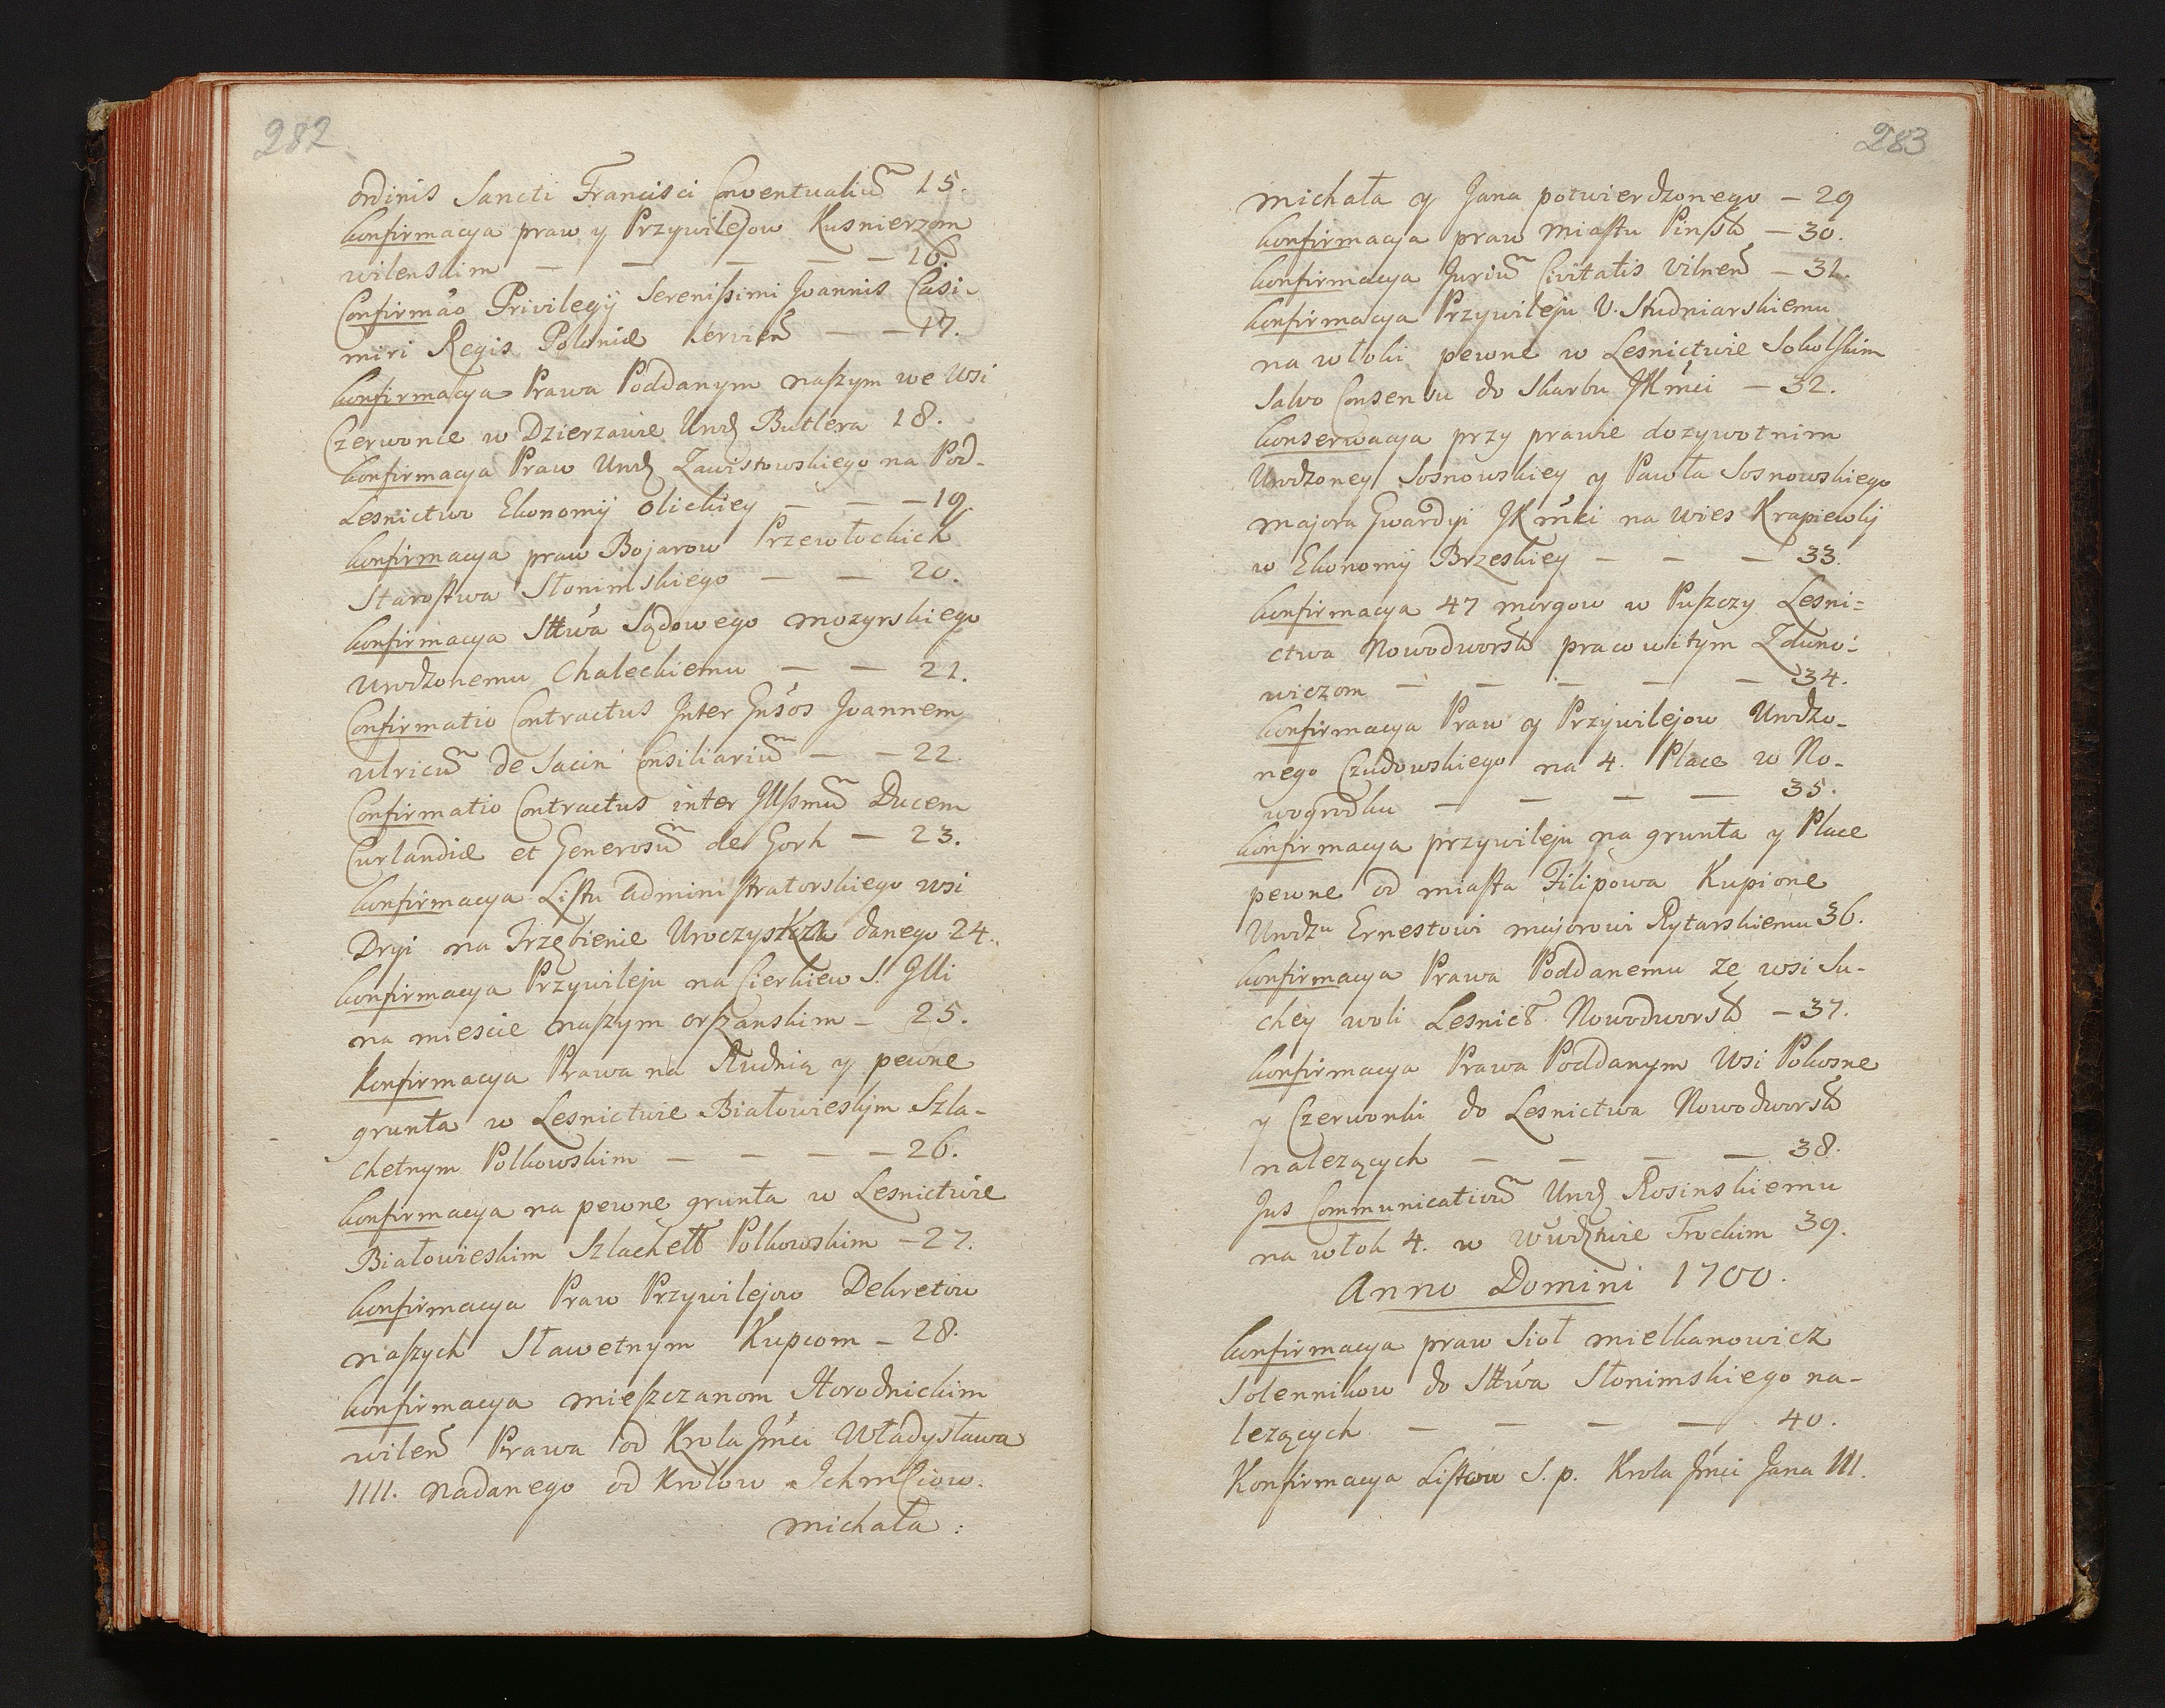 282
ordinis Sancti Francisci Conventualiu͠ 15.
konfirmacya praw y Przywilejow Kusnierzom
wilenskim — — — — — 16.
Confirmão Privilegÿ Sereniſsimi Joannis Casi-
miri Regis Poloniæ servien͠ — — 17.
konfirmacya Prawa Poddanym naſzym we Wsi
Czerwonce w Dzierzawie Urodz Butlera 18.
konfirmacya Praw Urodz Zawistowskiego na Pod-
Lesnictwo Ekonomÿ olickiey — — — 19.
konfirmacya praw Bojarow Przewłockich
Staroſtwa Słonimskiego — — 20.
konfirmacya Sttwa Sądowego mozyrskiego
urodzonemu Chaleckiemu — — 21.
Confirmatio Contractus Inter Gnsos Joannem
ulricu͠ de Sacin Consiliariu͠ — — 22.
Confirmatio Contractus inter Illſsmu͠ Ducem
Curlandiæ et Generosu͠ de Gorh — 23.
konfirmacya Liſtu adminiſtratorskiego wsi
Dryi na Trzębienie Uroczyszcza danego 24.
konfirmacya Przywileju na Cierkiew S. Illi
na miescie naſzym orſzanskim — 25.
konfirmacya Prawa na Studnią y pewne
grunta w Lesnictwie Białowieskim Szla-
chetnym Polkowskim — — — — 26.
konfirmacya na pewne grunta w Lesnictwie
Białowieskim Szlachett Polkowskim — 27.
konfirmacya Praw Przywilejow Dekretow
naſzych Sławetnym Kupcom — 28.
konfirmacya mieſzczanom Horodnickim
wilen͠ Prawa od Krola Jmci Władysława
IIII. nadanego od Krolow Ichmciow.
michała:
283
michała y Jana potwierdzonego — 29
konfirmacya praw miaſtu Pinſk — 30.
konfirmacya Juriu͠ Civitatis Vilnen͠ — 31.
konfirmacya Przywileju U. Studniarskiemu
na włoki pewne w Lesnictwie Sokolſkim
salvo Consensu do Skarbu JKmci — 32.
konserwacya przy prawie dozywotnim
Urodzoney Sosnowskiey y Pawła Sosnowskiego
majora Gwardyi JKmci na wies Krapiewky
w Ekonomÿ Brzeskiey — — — 33.
konfirmacya 47 morgow w Puſzczy Lesni=
ctwa Nowodworsk pracowitym Zduno-
wiczom — — — — — 34.
konfirmacya Praw y Przywilejow Urodzo-
nego Czudowskiego na 4. Place w No-
wogrodku — — — — 35.
konfirmacya przywileju na grunta y Place
pewne od miaſta Filipowa Kupione
Urodzu Ernestowi majorowi Rytarskiemu 36.
konfirmacya Prawa Poddanemu ze wsi Su-
chey woli Lesnict Nowodworsk — 37.
konfirmacya Prawa Poddanym Wsi Pokosne
y Czerwonki do Lesnictwa Nowodworsk
nalezących — — — — 38.
Jus Communicativu͠ Urodz Rosinskiemu
na włok 4. w Wwdztwie Trockim 39.
Anno Domini 1700.
konfirmacya praw Sioł mielkanowicz
Solennikow do Sttwa Słonimskiego na-
lezących — — — — 40.
Konfirmacya Liſtow S. p. Krola Jmci Jana III.